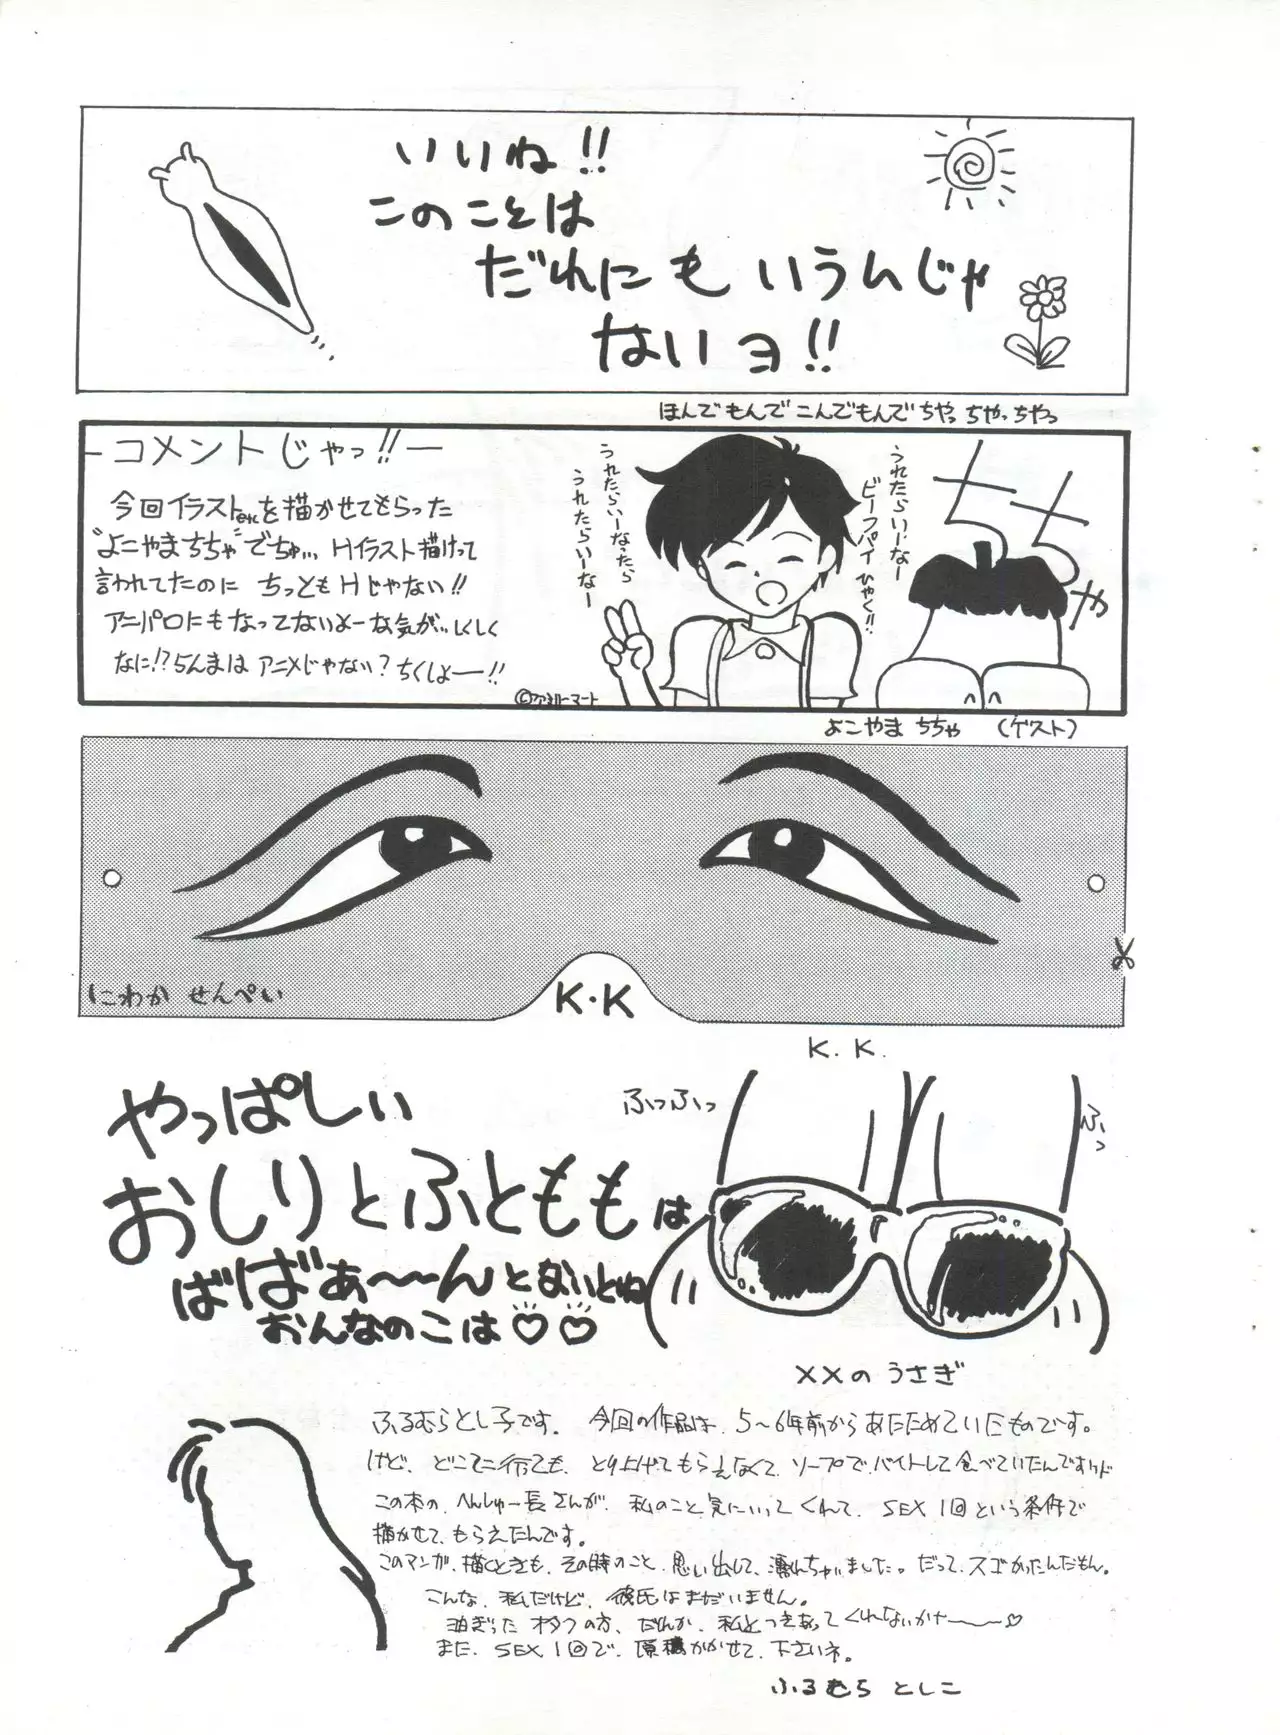 いいね!!
このことは
だれにもいうんじゃ
ないヨ!!
ほんでもんでこんでもんでちゃっちゃっちゃっ
コメントじゃっ!!
今回イラストetcを描かせてもらった
"よこやまちちゃ"でちゅ... Hイラスト描けって
言われてたのに ちっともHじゃない!!
アニパロにもなってないよーな気が..しくしく
なに!?らんまは アニメじゃない? ちくしょー!!
うれたらいーなったら
うれたらいーなー
うれたらいーなー
ビーフパイひゃく!!
ちちゃ
©ファミリーマート
よこやま ちちゃ (ゲスト)
にわか せんぺい
K・K
K.K.
やっぱしぃ
おしりとふとももは
ばばぁ〜〜んとないとね
おんなのこは♡♡
ふっふっ
ふっ
××のうさぎ
ふるむらとし子です。今回の作品は、5〜6年前からあたためていたものです。
けど、どこに行っても、とり上げてもらえなくて、ソープでバイトして食べていたんですけど
この本の、へんしゅー長さんが、私のこと気にいってくれて、SEX1回という条件で
描かせて、もらえたんです。
このマンガ、描くときも、その時のこと、思い出して、濡れちゃいました。だって、スゴかったんだもん。
こんな、私だけど、彼氏はまだいません。
オタクの方、だれか、私とつきあってくれないかナーー♡
また、SEX1回で、原稿かかせて、下さいネ。
ふるむら としこ